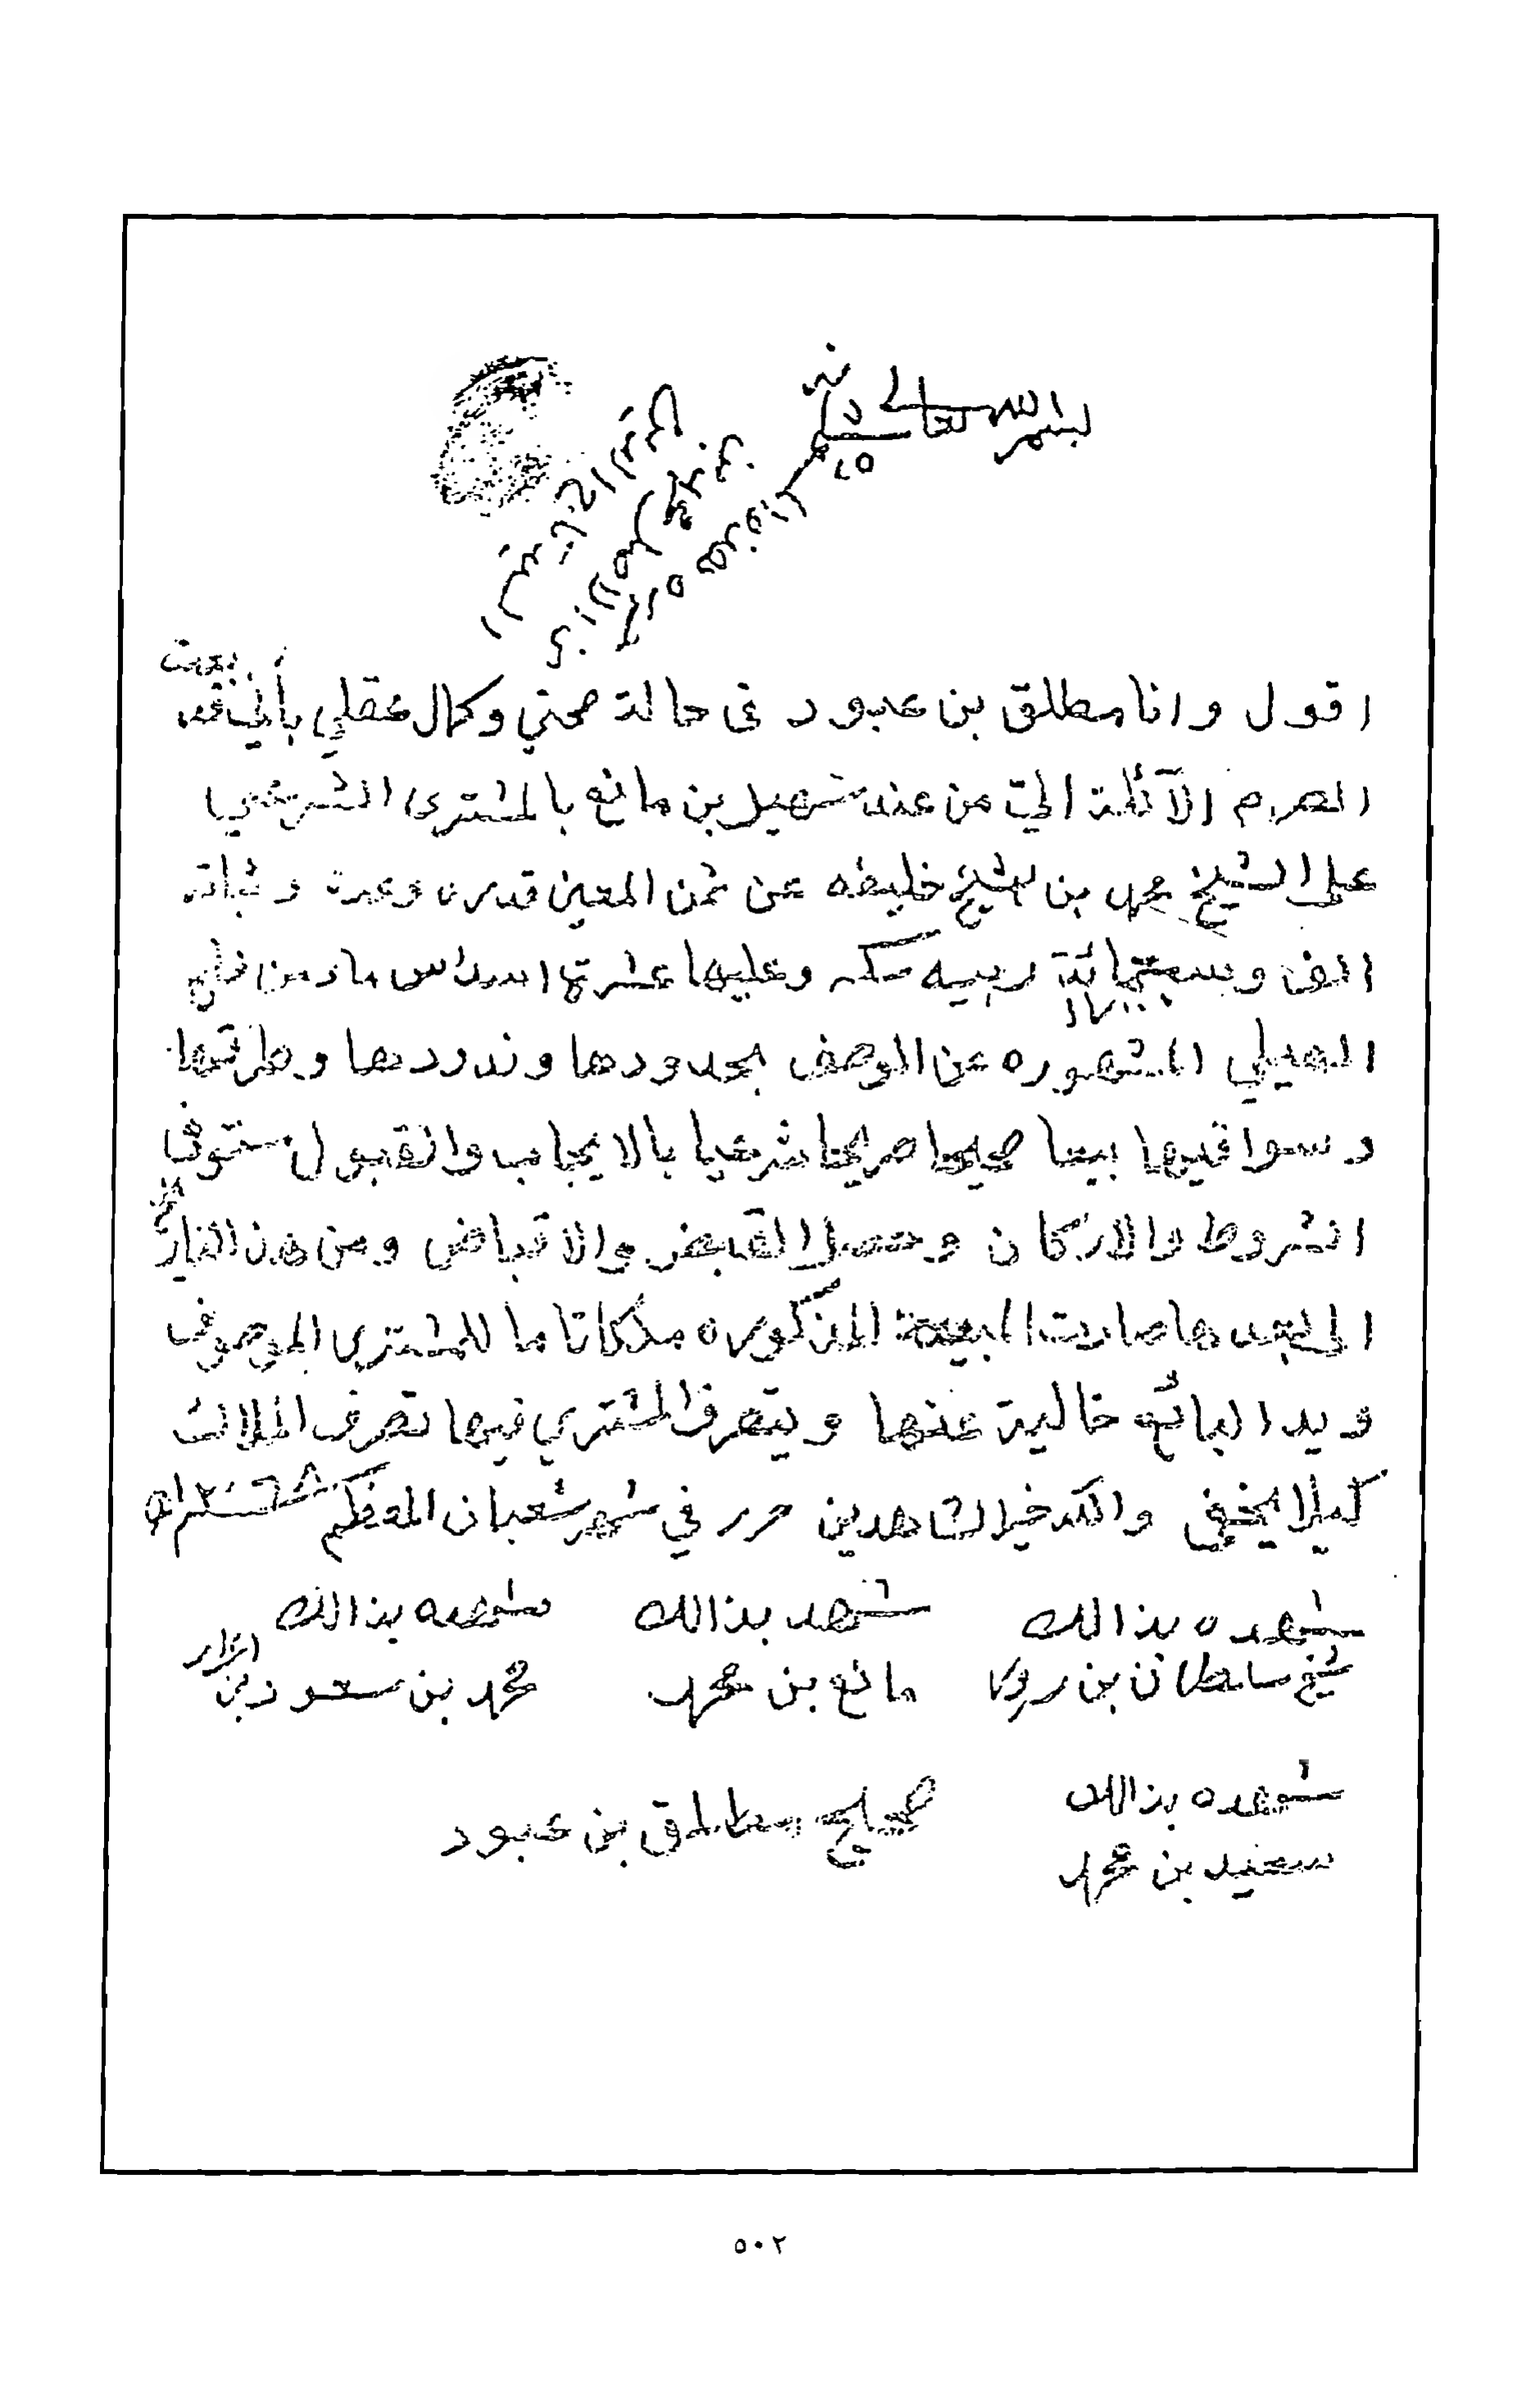 بسم الله تعالى
اقول وانا مطلق بن عبود في حالة صحتي وكمال عقلي بأني قد بعت
الصرم الآئلة اليّ من عند سهيل بن مانع بالمشترى الشرعي
على الشيخ محمد بن الشيخ خليفه عن ثمن المعين قدره وعده
الف وسبعمائة ربيه سكه وعليها عشرة اسداس ماء من فلج
الهيلي المشهوره عن الوصف بحدودها وندودها وطرقها
وسواقيها بيعا صحيحا صريحا شرعيا بالايجاب والقبول مستوفى
الشروط والاركان وحصل القبض والاقباض ومن هذا التاريخ
الى بعدها صارت المبيعة المذكوره ملكا تاما للمشتري الموصوف
ويد البائع خالية عنها ويتصرف المشتري فيها تصرف الملاك
كيلا يخفى والله خير الشاهدين حرر في شهر شعبان المعظم
شهده بذالك شهد بذالك شهده بذالك
شيخ سلطان بن مانع بن محمد محمد بن سعود بن
شهده بذالك
صحيح مطلق بن عبود
سعيد بن محمد
٥٠٢